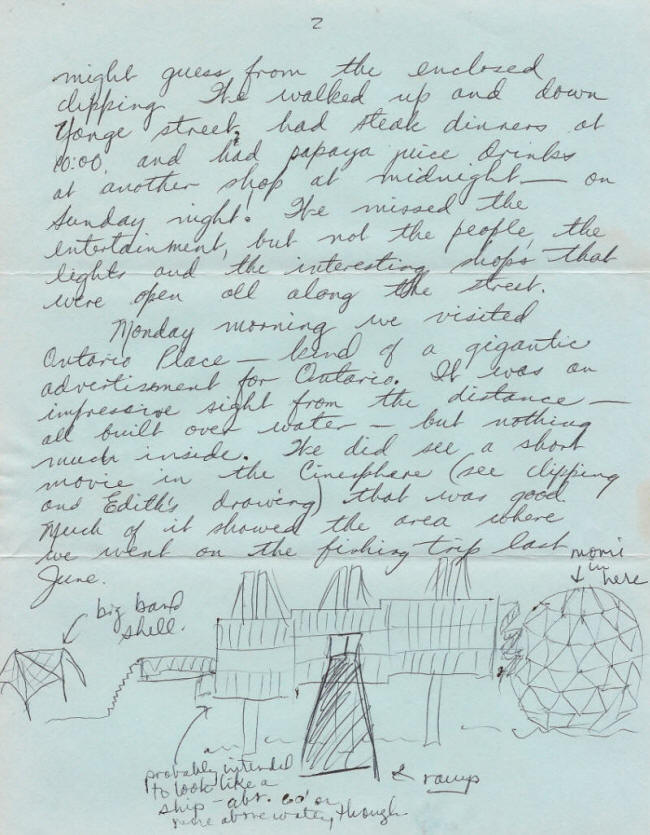 2
might guess from the enclosed
clipping. We walked up and down
Yonge street, had steak dinners at
10:00, and had papaya juice drinks
at another shop at midnight — on
Sunday night! We missed the
entertainment, but not the people, the
lights and the interesting shops that
were open all along the street.
Monday morning we visited
Ontario Place — kind of a gigantic
advertisement for Ontario. It was an
impressive sight from the distance —
all built over water — but nothing
much inside. We did see a short
movie in the Cinesphere (see clipping
and Edith's drawing) that was good.
Much of it showed the area where
we went on the fishing trip last
June.
movie
in
here
big band
shell.
probably intended
to look like a
ship - abt. 60' or
more above water, though
ramp